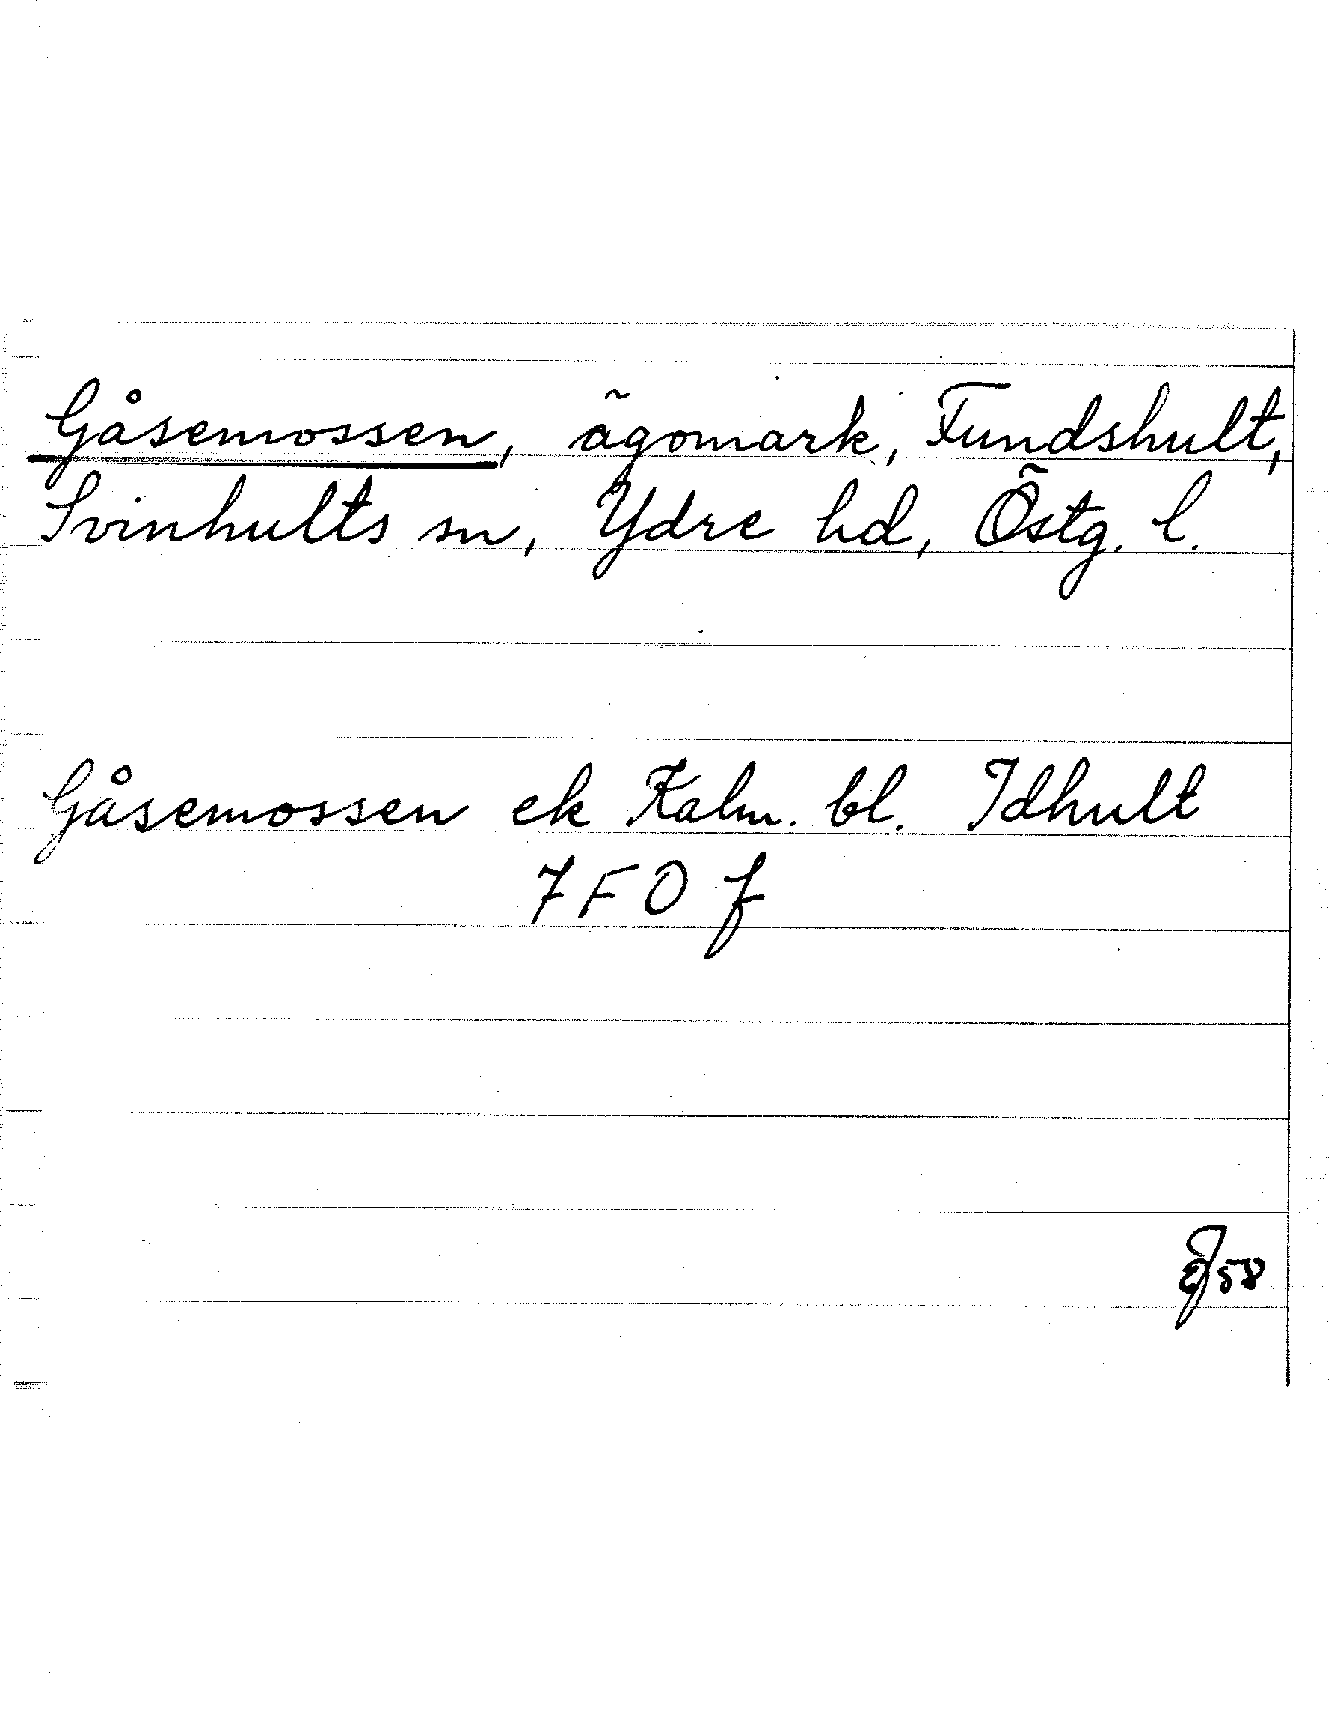 Gåsemossen, ägomark, Fundshult,
Svinhults sn, Ydre hd, Östg. l.
Gåsemossen ek Kalm. bl. Idhult
7 F 0 f
58